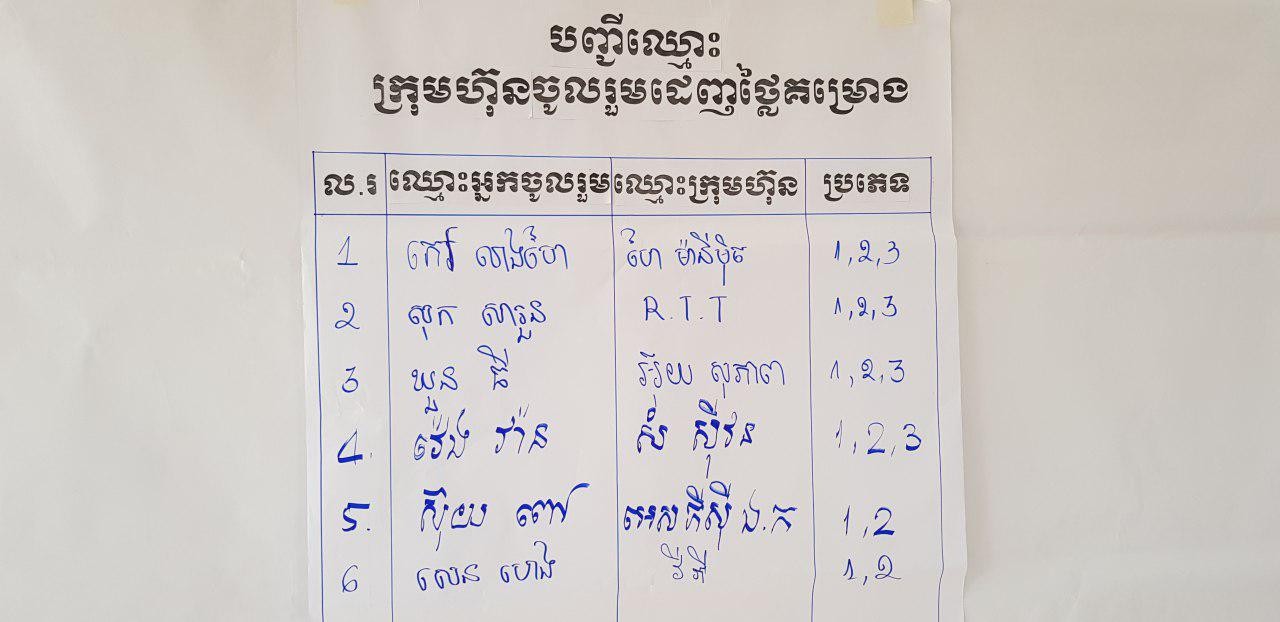 បញ្ជីឈ្មោះ
ក្រុមហ៊ុនចូលរួមដេញថ្លៃគម្រោង
ល.រ ឈ្មោះអ្នកចូលរួម ឈ្មោះក្រុមហ៊ុន ប្រភេទ
1 កៅ លាងហៃ ហៃ 1,2,3
2 សុក សារួន R.T.T 1,2,3
3 ឃួន អ៊ុយ សុភាព 1,2,3
4. វ៉េង វ៉ាន សំ ស៊ីវន 1,2,3
5. ស៊ុយ ពៅ 1,2
6 សេន ហេង 1,2